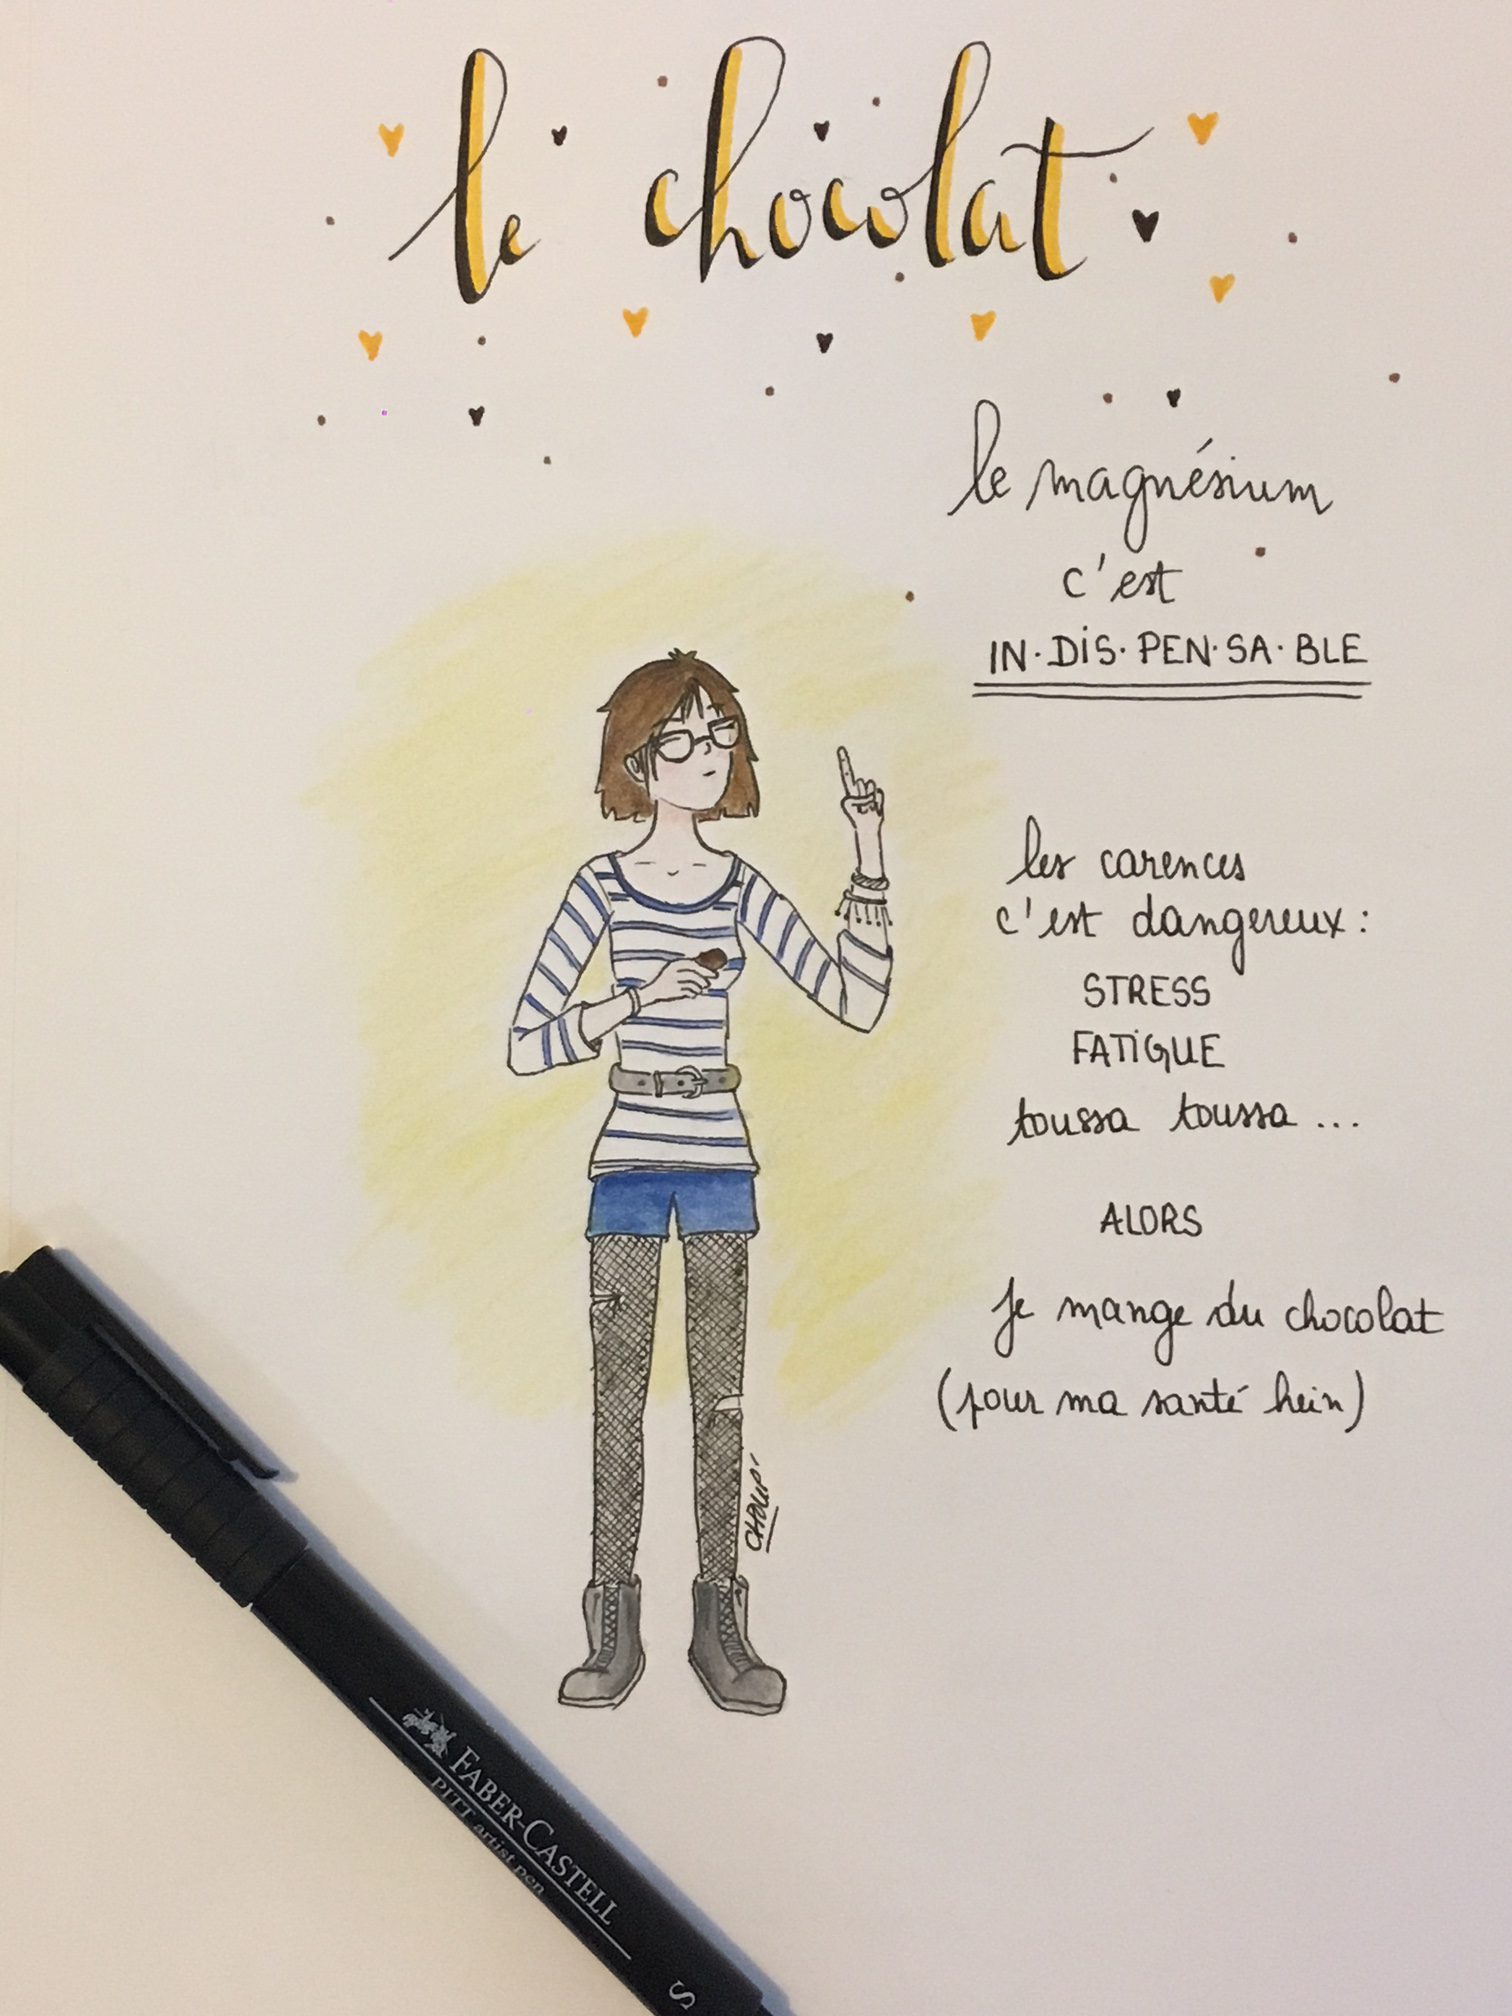 le chocolat
le magnésium
c'est
IN·DIS·PEN·SA·BLE
les carences
c'est dangereux :
STRESS
FATIGUE
toussa toussa ...
ALORS
je mange du chocolat
(pour ma santé hein)
CHOUP'
FABER-CASTELL
PITT artist pen
S